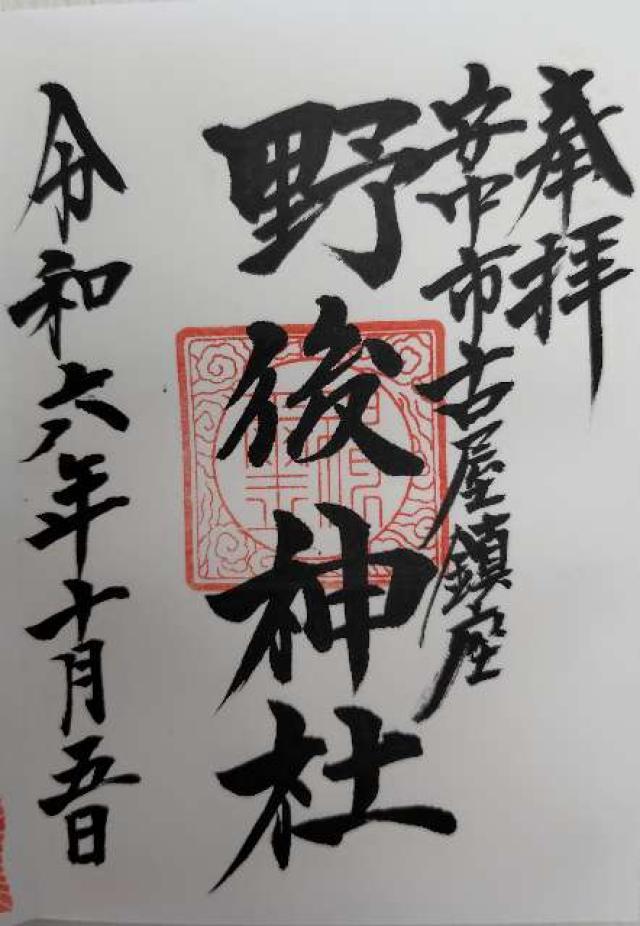 奉拝
安中市古屋鎮座
野後神社
令和六年十月五日